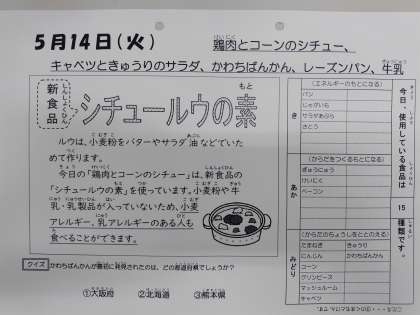 5月14日(火)
鶏肉とコーンのシチュー、
キャベツときゅうりのサラダ、かわちばんかん、レーズンパン、牛乳
新食品
シチュールウの素
ルウは、小麦粉をバターやサラダ油などでいた
めて作ります。
今日の「鶏肉とコーンのシチュー」は、新食品の
「シチュールウの素」を使っています。小麦粉や牛
乳・乳製品が入っていないため、小麦
アレルギー、乳アレルギーのある人も
食べることができます。
クイズ
かわちばんかんが最初に発見されたのは、どの都道府県でしょうか?
①大阪府 ②北海道 ③熊本県
き
(エネルギーのもとになる)
パン
じゃがいも
サラダあぶら
さとう
あか
(からだをつくるもとになる)
ぎゅうにゅう
けいにく
ベーコン
みどり
(からだのちょうしをととのえる)
たまねぎ きゅうり
にんじん かわちばんかん
コーン
グリンピース
マッシュルーム
キャベツ
今日、使用している食品は
15種類です。